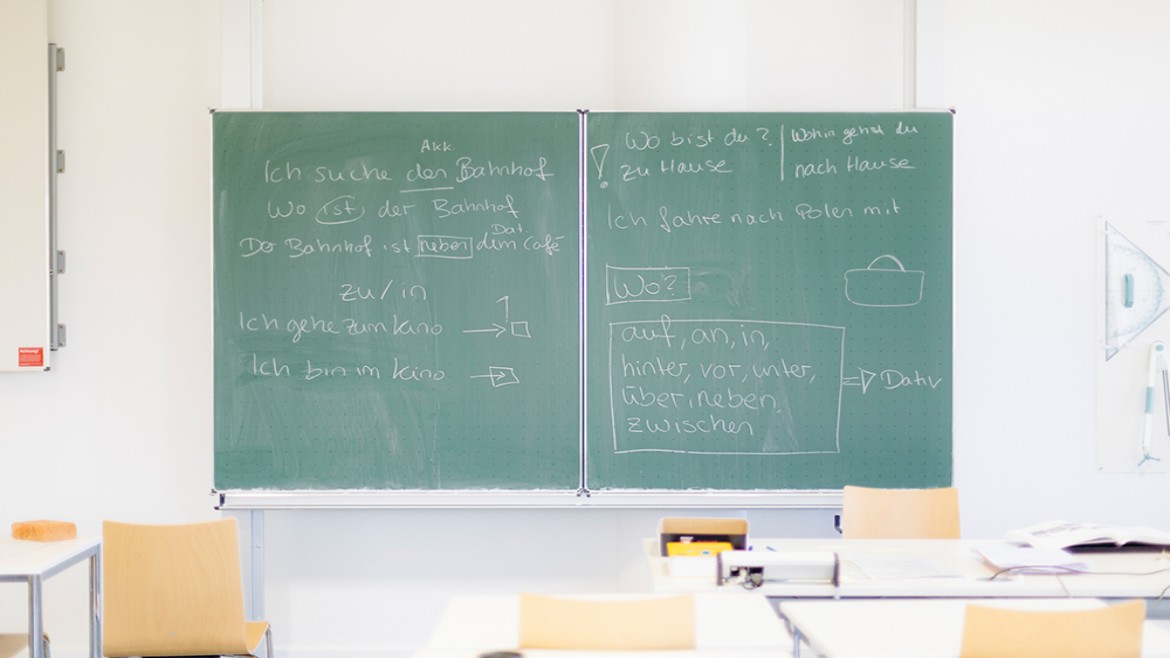 Akk.
Ich suche den Bahnhof
Wo ist der Bahnhof
Dat.
Der Bahnhof ist neben dem Café
zu/in
Ich gehe zum Kino
Ich bin im Kino
! Wo bist du?
zu Hause
Wohin gehst du
nach Hause
Ich fahre nach Polen mit
Wo?
auf, an, in,
hinter, vor, unter,
über, neben,
zwischen
Dativ
Achtung!